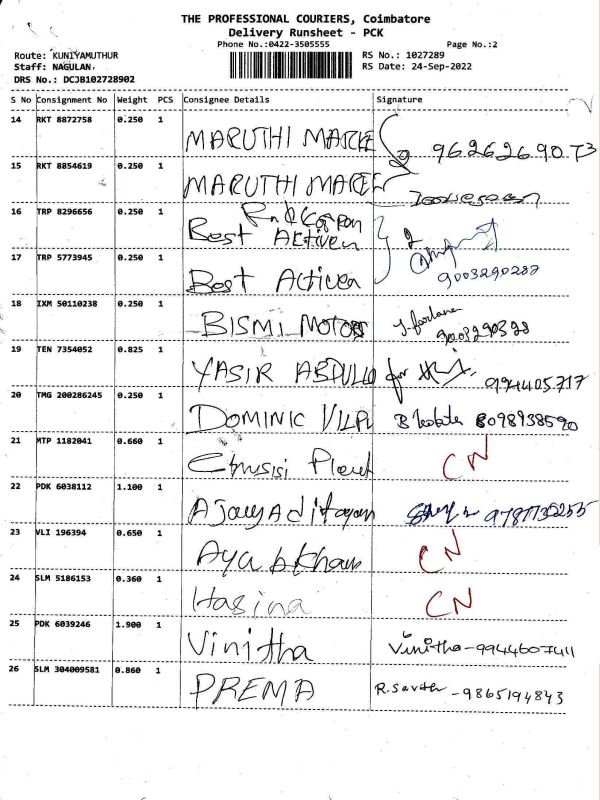 THE PROFESSIONAL COURIERS, Coimbatore
Delivery Runsheet - PCK
Phone No.:0422-3505555 Page No.:2
Route: KUNIYAMUTHUR RS No.: 1027289
Staff: NAGULAN. RS Date: 24-Sep-2022
DRS No.: DCJB102728902
S No Consignment No Weight PCS Consignee Details Signature
14 RKT 8872758 0.250 1 MARUTHI 9626269073
15 RKT 8854619 0.250 1 MARUTHI
16 TRP 8296656 0.250 1 Best
17 TRP 5773945 0.250 1 Best 9003290287
18 IXM 50110238 0.250 1 BISMI MOTORS
19 TEN 7354052 0.825 1 YASIR ABDULLO for
20 TMG 200286245 0.250 1 DOMINIC 8098938590
21 MTP 1182041 0.660 1 CN
22 PDK 6038112 1.100 1
23 VLI 196394 0.650 1 Ayubkhan CN
24 SLM 5186153 0.360 1 Hasina CN
25 PDK 6039246 1.900 1 Vinitha Vinitha-9944607411
26 SLM 304009581 0.860 1 PREMA -9865194843